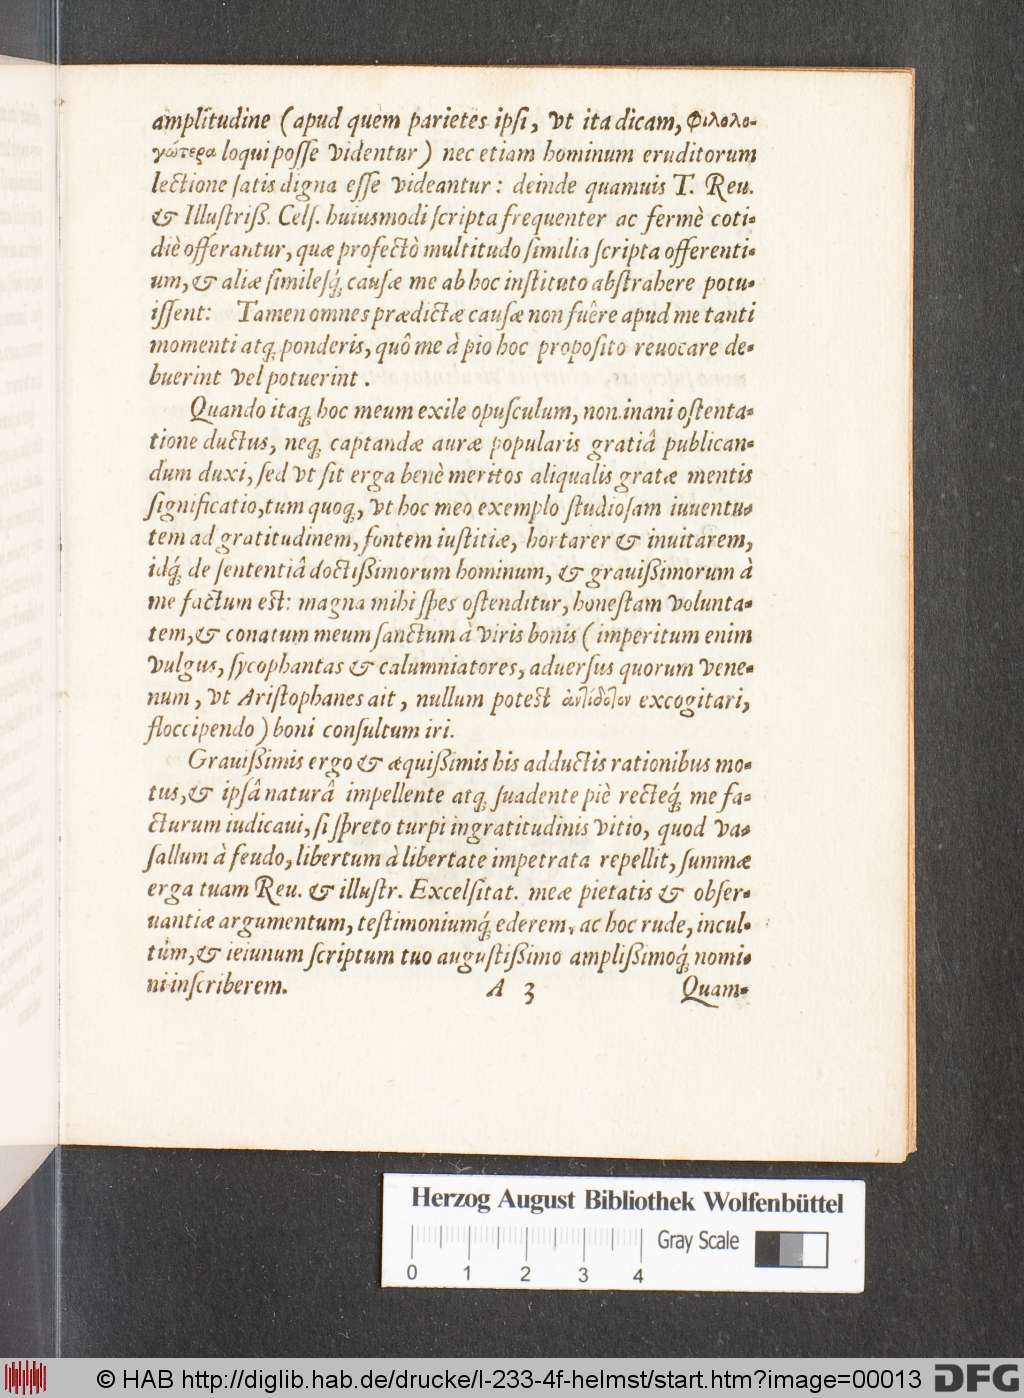 amplitudine (apud quem parietes ipſi, vt ita dicam, φιλολο-
γώτερα loqui poſſe videntur) nec etiam hominum eruditorum
lectione ſatis digna eſſe videantur: deinde quamuis T. Reu.
& Illuſtriß. Celſ. huiusmodi ſcripta frequenter ac fermè coti-
diè offerantur, quæ profectò multitudo ſimilia ſcripta offerenti-
um, & aliæ ſimileſq́ cauſæ me ab hoc inſtituto abſtrahere potu-
iſſent: Tamen omnes prædictæ cauſæ non fuêre apud me tanti
momenti atq ponderis, quô me à pio hoc propoſito reuocare de-
buerint vel potuerint.
Quando itaq hoc meum exile opuſculum, non inani oſtenta-
tione ductus, neq captandæ auræ popularis gratiâ publican-
dum duxi, ſed vt ſit erga benè meritos aliqualis gratæ mentis
ſignificatio, tum quoq, vt hoc meo exemplo ſtudioſam iuuentu-
tem ad gratitudinem, fontem iuſtitiæ, hortarer & inuitarem,
idq́ de ſententiâ doctißimorum hominum, & grauißimorum à
me factum est: magna mihi ſpes oſtenditur, honeſtam volunta-
tem, & conatum meum ſanctum à viris bonis (imperitum enim
vulgus, ſycophantas & calumniatores, aduerſus quorum vene-
num, vt Ariſtophanes ait, nullum potest ἀντίδοτον excogitari,
floccipendo) boni conſultum iri.
Grauißimis ergo & æquißimis his adductis rationibus mo-
tus, & ipſâ naturâ impellente atq ſuadente piè recteq́ me fa-
cturum iudicaui, ſi ſpreto turpi ingratitudinis vitio, quod va-
ſallum à feudo, libertum à libertate impetrata repellit, ſummæ
erga tuam Reu. & illuſtr. Excelſitat. meæ pietatis & obſer-
uantiæ argumentum, teſtimoniumq́ ederem, ac hoc rude, incul-
tum, & ieiunum ſcriptum tuo auguſtißimo amplißimoq́ nomi-
ni inſcriberem.
A 3 Quam-
Herzog August Bibliothek Wolfenbüttel
Gray Scale
0 1 2 3 4
© HAB http://diglib.hab.de/drucke/l-233-4f-helmst/start.htm?image=00013
DFG